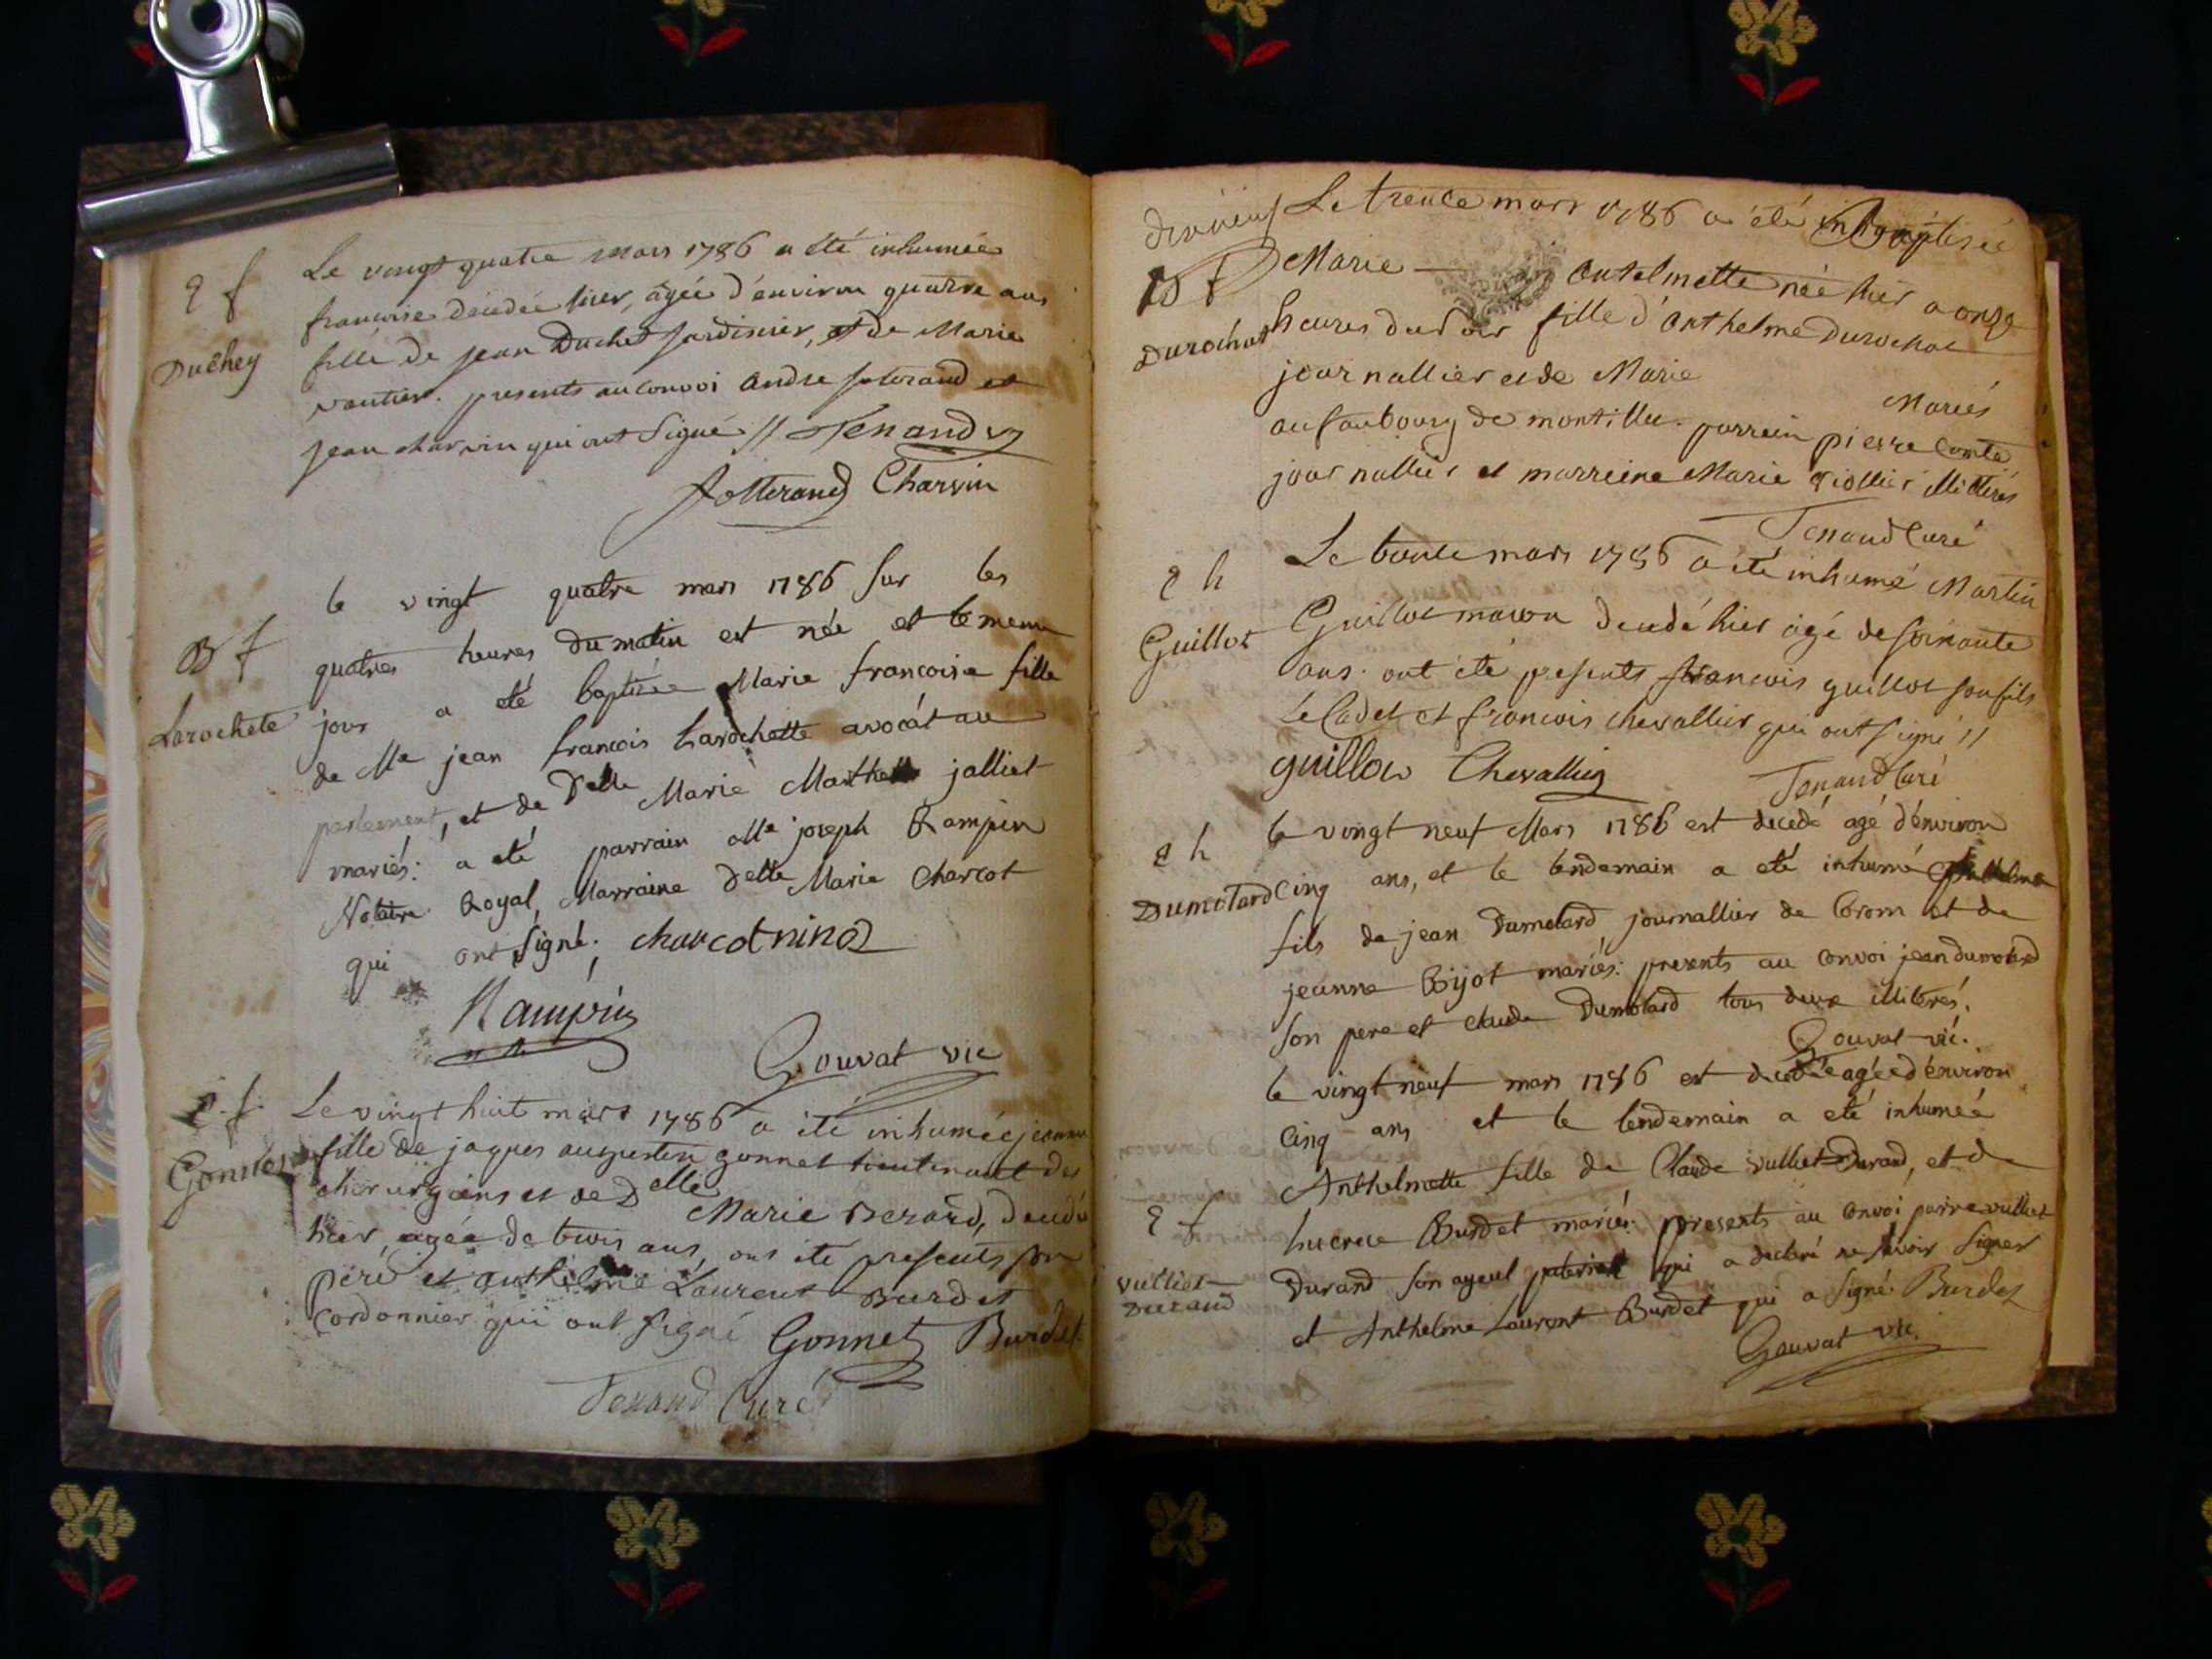 Le vingt quatre mars 1786 a été inhumée
francoise décédée hier, âgée d'environ quatre ans
fille de jean Duchet jardinier, et de Marie
vautier. presents au convoi andre joterand et
jean charvin qui ont signé // Tenand
Jotterand Charvin
E f
Duchey
le vingt quatre mars 1786 sur les
quatres heures du matin est née et le meme
jour a eté baptisée Marie francoise fille
de Me jean francois Larochette avocát au
parlement, et de Delle Marie Marthe jalliet
mariés: a eté parrain Me joseph Rampin
Notaire Royal, Marraine delle Marie Charcot
qui ont signé. charcot nino
Rampin
Gouvat vic
B f
Larochete
Le vingt huit mars 1786 a été inhumée jeanne
fille de jaques augustin gonnet lieutenant des
chirurgiens et de Delle Marie Berard, decedé
hier, agée de trois ans, ont été presents son
pere et anthelme Laurent Burdet
Cordonnier qui ont signé Gonnet Burdet
Tenand Curé
E. f.
Gonnet
dixneuf
Le trente mars 1786 a été Baptisée
Marie antelmette née hier a onze
heures du soir fille d'anthelme Durochat
journallier et de Marie
Mariés
au faubourg de montillet. parrein pierre Comte
journallier et marreine Marie illitérés
Tenand Curé
B f
Durochat
Le trente mars 1786 a été inhumé Martin
Guillot macon decedé hier âgé de soixante
ans. ont été presents francois guillot son fils
Le Cadet et francois chevallier qui ont signé //
guillot Chevallier Tenand Curé
E h
Guillot
le vingt neuf Mars 1786 est decedé agé d'environ
cinq ans, et le lendemain a eté inhumé
fils de jean Dumolard journallier de Corom et de
jeanne Bijot mariés: presents au convoi jean dumolard
son pere et claude Dumolard tous deux illiterés.
Gouvat vic.
E h
Dumolard
le vingt neuf mars 1786 est decedée agée d'environ
cinq ans et le lendemain a eté inhumée
Anthelmette fille de Claude Vulliet Durand, et de
Lucrece Burdet mariés: presents au convoi pierre vulliet
Durand son ayeul paternel qui a declaré ne savoir signer
et Anthelme Laurent Burdet qui a signé Burdet
Gouvat vic.
E f
Vulliet
Durand